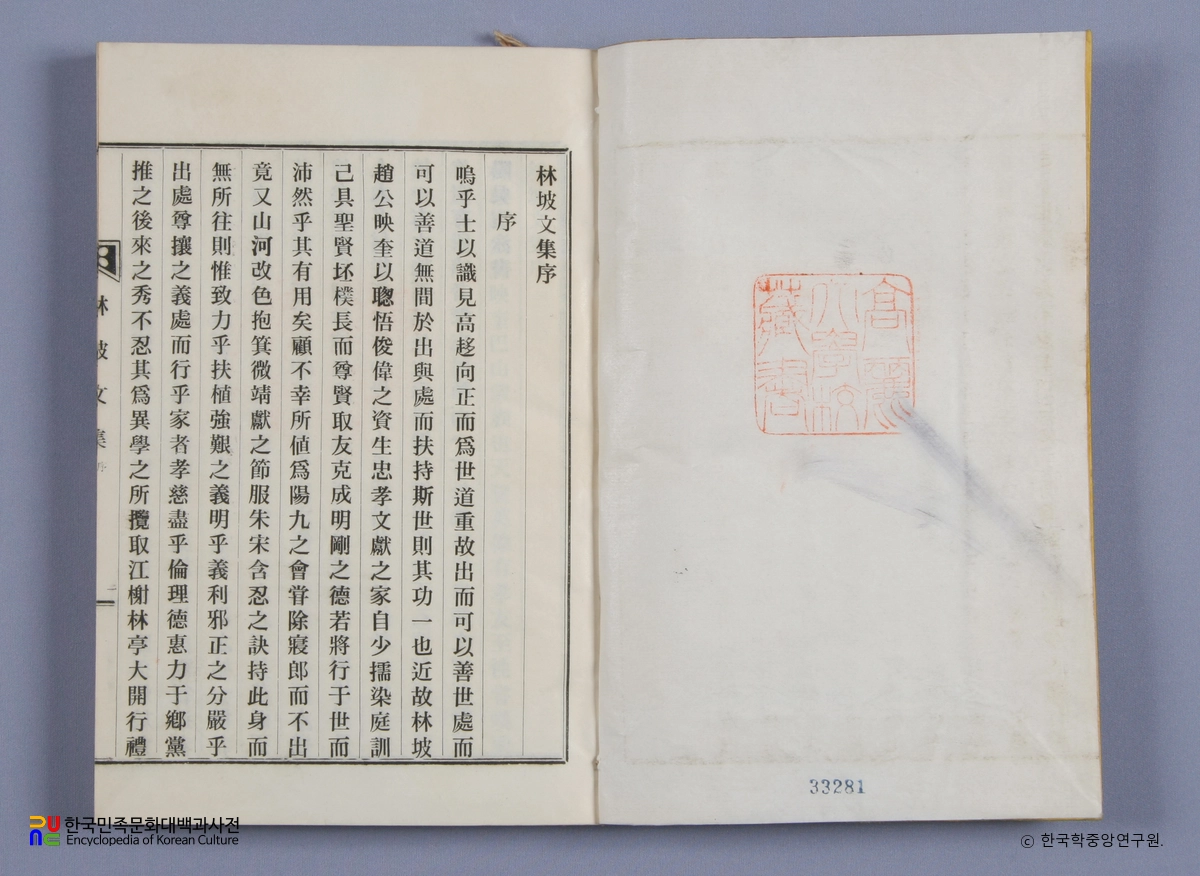 高麗
大學校
藏書
33281
林坡文集序
序
嗚乎士以識見高趍向正而爲世道重故出而可以善世處而
可以善道無間於出與處而扶持斯世則其功一也近故林坡
趙公映奎以聰悟俊偉之資生忠孝文獻之家自少擩染庭訓
己具聖賢坯樸長而尊賢取友克成明剛之德若將行于世而
沛然乎其有用矣顧不幸所値爲陽九之會甞除寢郎而不出
竟又山河改色抱箕微靖獻之節服朱宋含忍之訣持此身而
無所往則惟致力乎扶植強艱之義明乎義利邪正之分嚴乎
出處尊攘之義處而行乎家者孝慈盡乎倫理德惠力于鄕黨
推之後來之秀不忍其爲異學之所攬取江榭林亭大開行禮
林坡文集
序
한국민족문화대백과사전
Encyclopedia of Korean Culture
ⓒ 한국학중앙연구원.